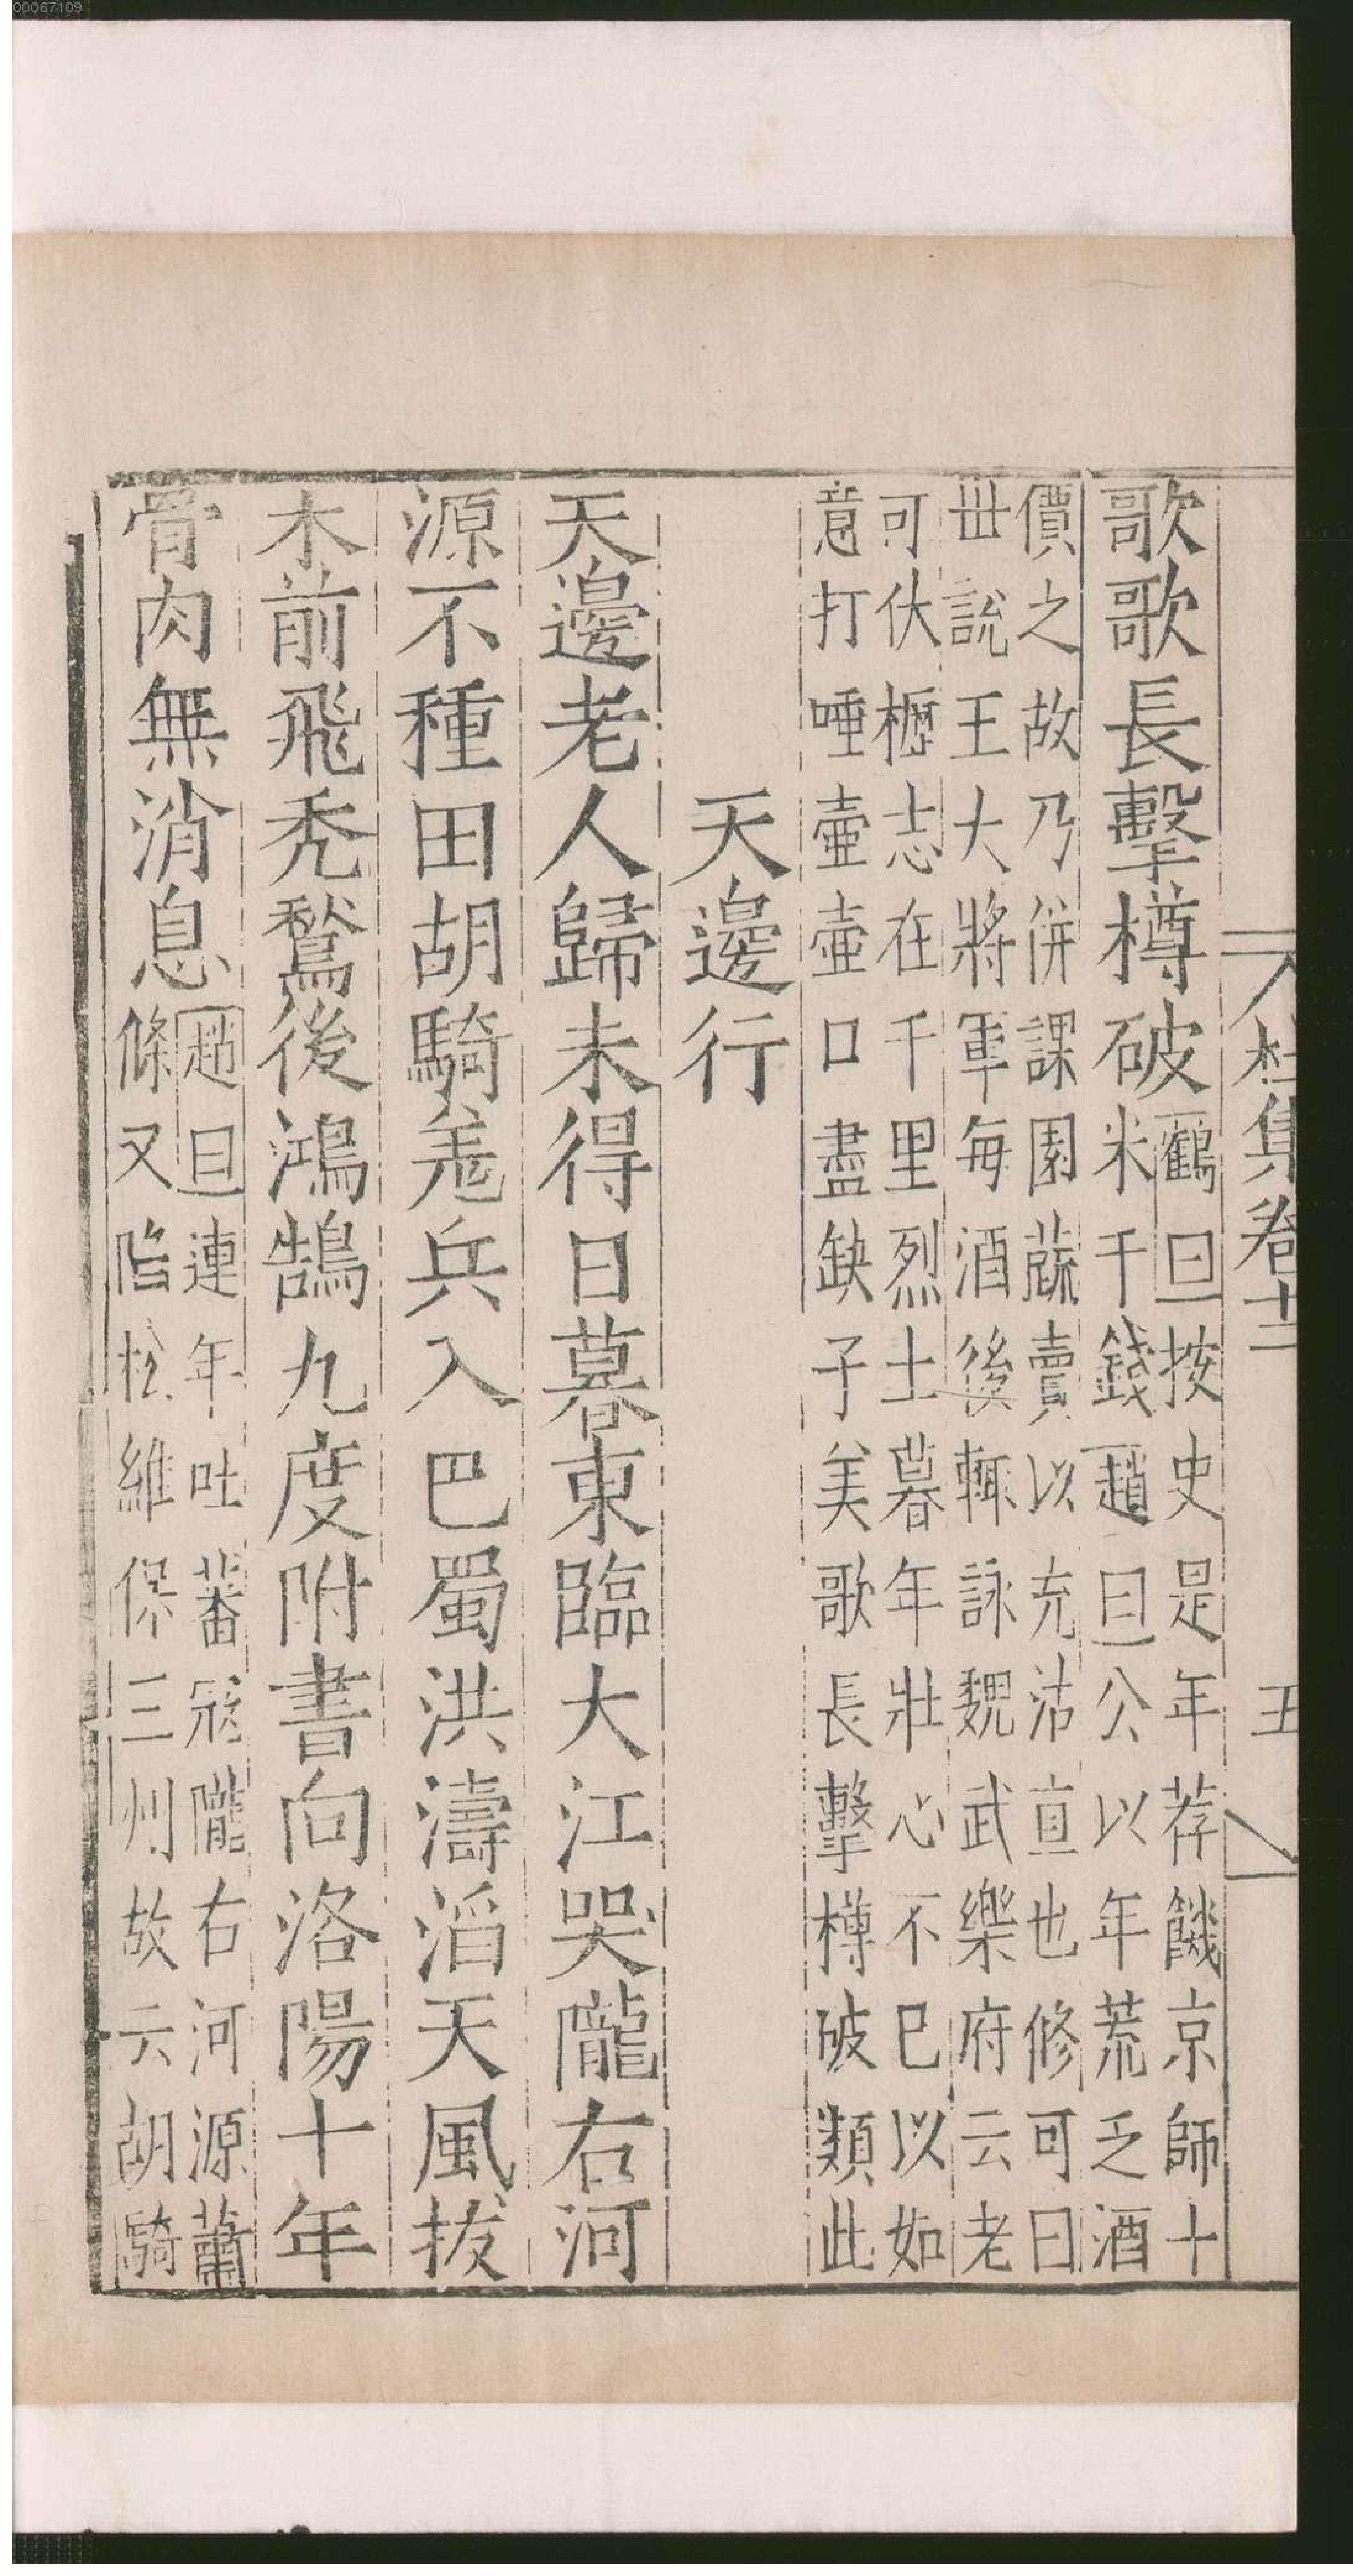 00067109
杜集卷十二
五
歌歌長擊樽破
鶴曰按史是年荐饑京師斗
米千錢趙曰公以年荒乏酒
價之故乃併課園蔬賣以充沽直也修可曰
世說王大將軍每酒後輒詠魏武樂府云老
可伏櫪志在千里烈士暮年壯心不已以如
意打唾壺壺口盡缺子美歌長擊樽破類此
天邊行
天邊老人歸未得日暮東臨大江哭隴右河
源不種田胡騎羌兵入巴蜀洪濤滔天風拔
木前飛禿鶖後鴻鵠九度附書向洛陽十年
骨肉無消息
趙曰連年吐蕃寇隴右河源蕭
條又陷松維保三州故云胡騎